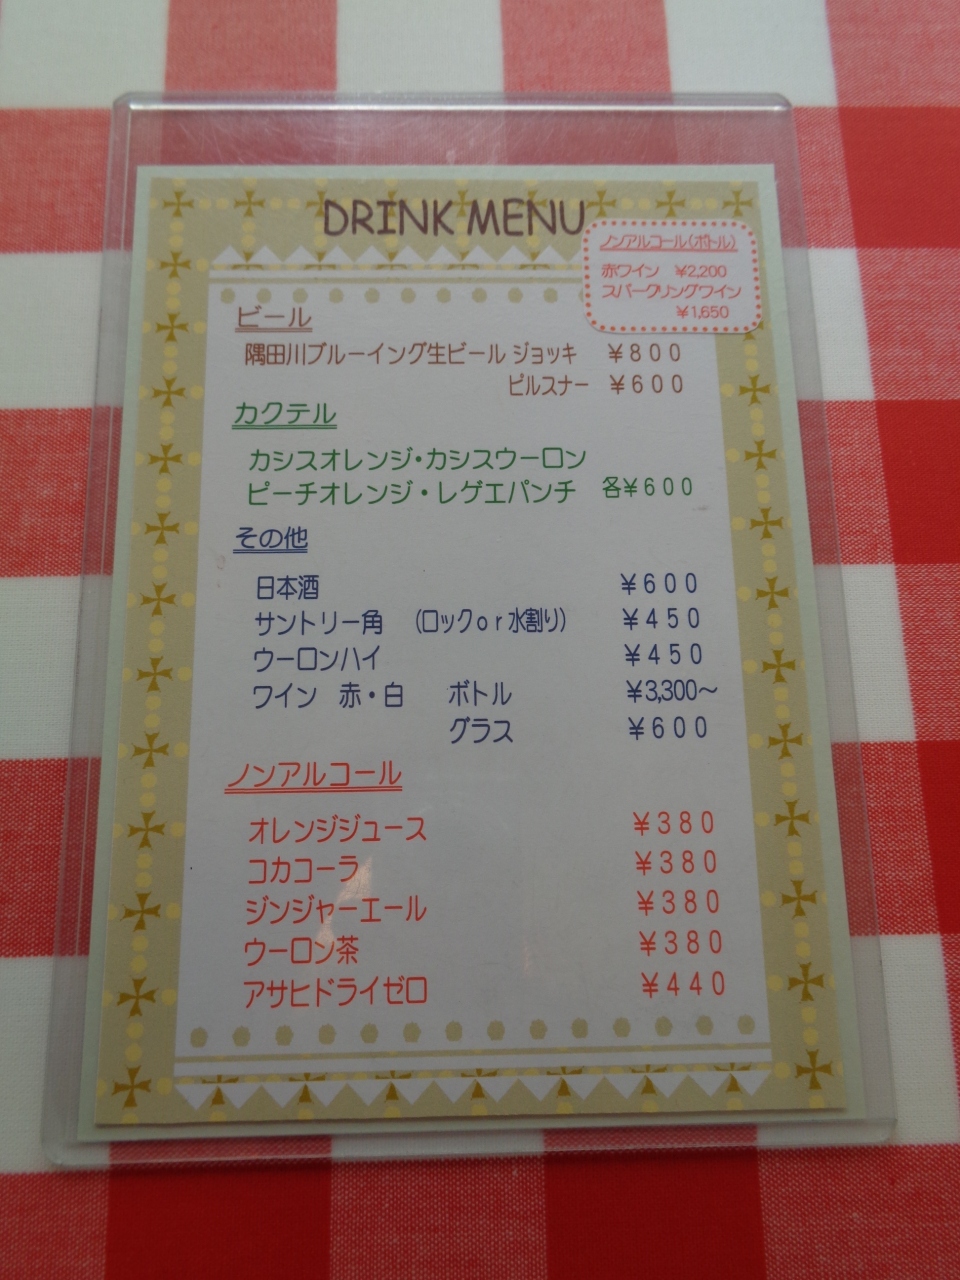 DRINK MENU
ノンアルコール(ボトル)
赤ワイン ¥2,200
スパークリングワイン
¥1,650
ビール
隅田川ブルーイング生ビール ジョッキ ¥800
ピルスナー ¥600
カクテル
カシスオレンジ・カシスウーロン
ピーチオレンジ・レゲエパンチ 各¥600
その他
日本酒 ¥600
サントリー角 (ロックor水割り) ¥450
ウーロンハイ ¥450
ワイン 赤・白 ボトル ¥3,300～
グラス ¥600
ノンアルコール
オレンジジュース ¥380
コカコーラ ¥380
ジンジャーエール ¥380
ウーロン茶 ¥380
アサヒドライゼロ ¥440